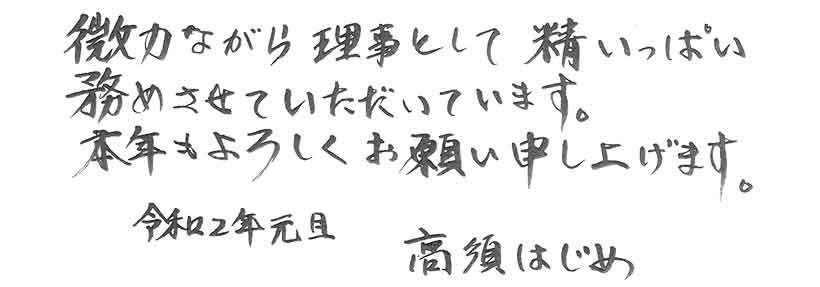 微力ながら理事として精いっぱい
務めさせていただいています。
本年もよろしくお願い申し上げます。
令和2年元旦
高須はじめ